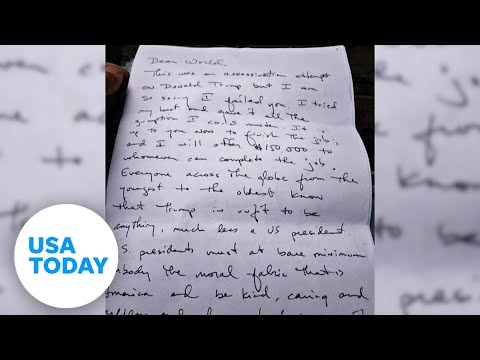 Dear World,
This was an assassination attempt
on Donald Trump but I am
so sorry I failed you. I tried
my best and gave it all the
gumption I could muster. It is
up to you now to finish the job;
and I will offer $150,000 to
whomever can complete the job.
Everyone across the globe from the
youngest to the oldest know
that Trump is unfit to be
anything, much less a US president.
.S. presidents must at bare minimum
body the moral fabric that is
merica and be kind, caring and
USA
TODAY